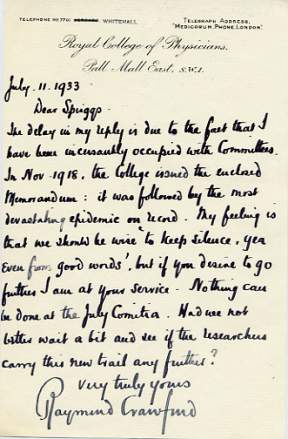 TELEPHONE NO. 7701 WHITEHALL
TELEGRAPH ADDRESS,
"MEDICORUM, PHONE, LONDON"
Royal College of Physicians,
Pall Mall East, S.W.1.
July. 11. 1933
Dear Spriggs.
The delay in my reply is due to the fact that I
have been incessantly occupied with Committees.
In Nov 1918, the College issued the enclosed
Memorandum: it was followed by the most
devastating epidemic on record. My feeling is
that we should be wise 'to keep silence, yea
even from good words', but if you desire to go
further I am at your service. Nothing can
be done at the July Comitia. Had we not
better wait a bit and see if the researchers
carry this new trail any further?
Very truly yours
Raymond Crawfurd